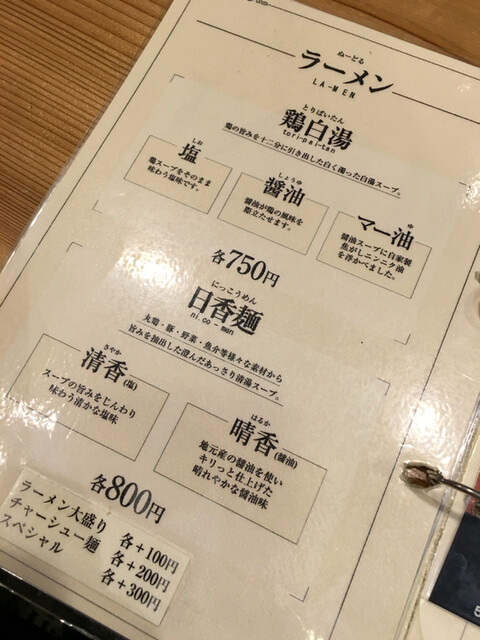 ぬーどる
ラーメン
LA-MEN
とりぱいたん
鶏白湯
tori-pai-tan
鶏の旨みを十二分に引き出した白く濁った白湯スープ。
しお
塩
鶏スープをそのまま
味わう塩味です。
しょうゆ
醤油
醤油が鶏の風味を
際立たせます。
ゆ
マー油
醤油スープに自家製
焦がしニンニク油
を浮かべました。
各750円
にっこうめん
日香麺
ni.co-men
丸鶏・豚・野菜・魚介等様々な素材から
旨みを抽出した澄んだあっさり清湯スープ。
さやか
清香(塩)
スープの旨みをじんわり
味わう清かな塩味
はるか
晴香(醤油)
地元産の醤油を使い
キリっと仕上げた
晴れやかな醤油味
各800円
ラーメン大盛り 各+100円
チャーシュー麺 各+200円
スペシャル 各+300円